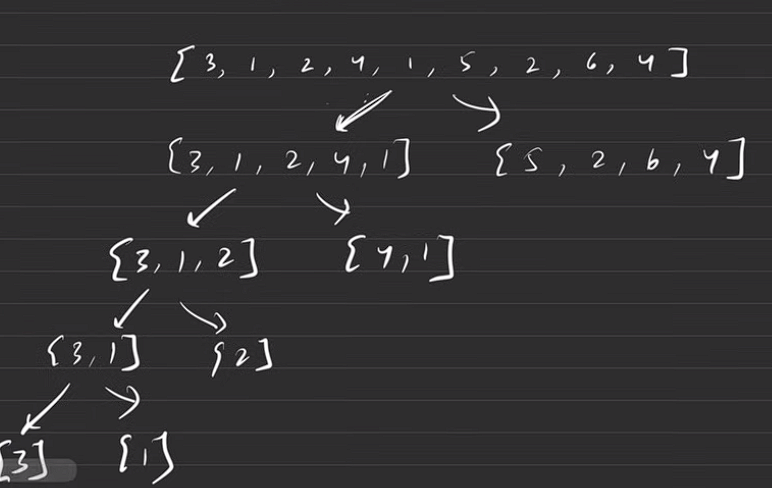 [3, 1, 2, 4, 1, 5, 2, 6, 4]
[3, 1, 2, 4, 1] [5, 2, 6, 4]
[3, 1, 2] [4, 1]
[3, 1] [2]
[3] [1]